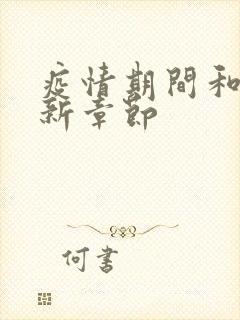 疫情期間和
新章節
何書